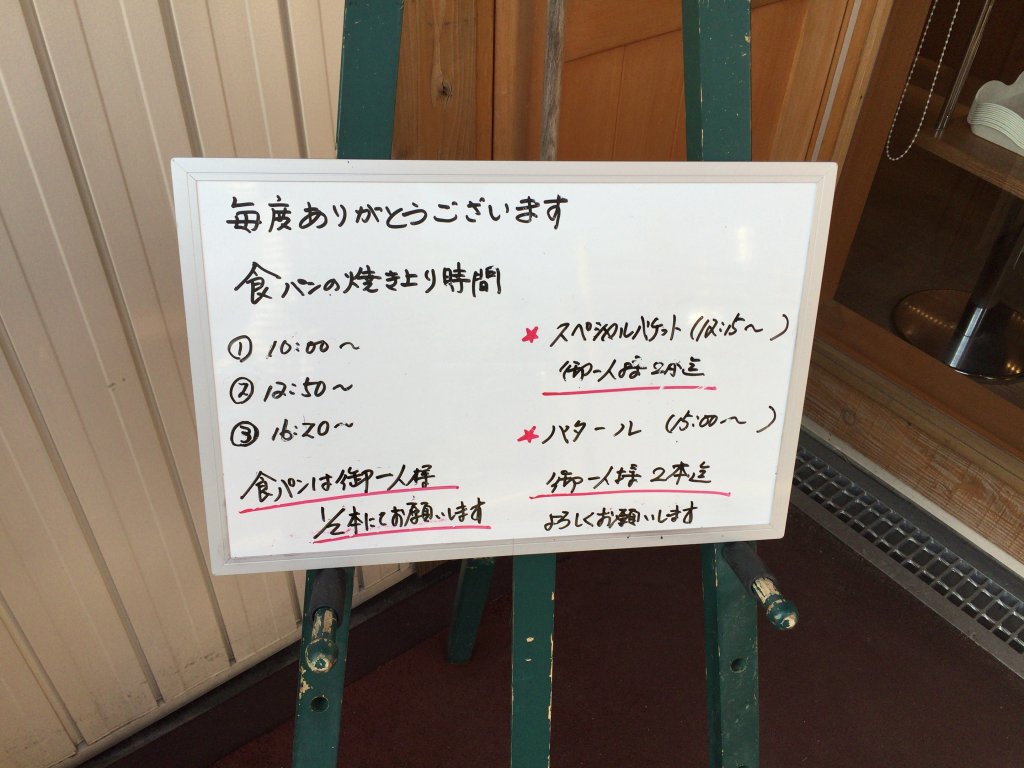 毎度ありがとうございます
食パンの焼き上り時間
① 10:00〜
② 12:50〜
③ 16:20〜
食パンは御一人様
1/2本にてお願いします
★ スペシャルバケット (12:15〜 )
御一人様 2本迄
★ バタール (15:00〜 )
御一人様 2本迄
よろしくお願いします